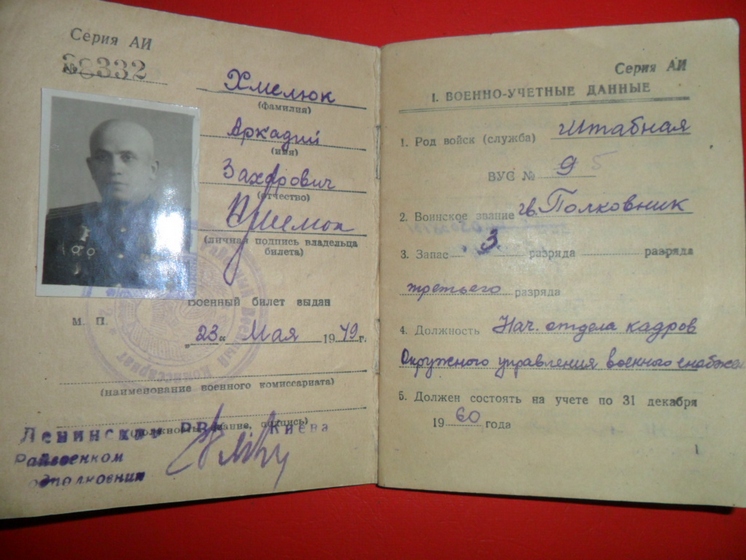 Серия АИ
№ 86332
Хмелюк
(фамилия)
Аркадий
(имя)
Захарович
(отчество)
(личная подпись владельца
билета)
Военный билет выдан
М. П.
„23“ Мая 1949 г.
(наименование военного комиссариата)
(должность, звание, подпись)
Ленинский РВК г. Киева
Райвоенком
подполковник
Серия АИ
I. ВОЕННО-УЧЕТНЫЕ ДАННЫЕ
1. Род войск (служба) Штабная
ВУС № 9
2. Воинское звание гв. Полковник
3. Запас 3 разряда разряда
третьего разряда
4. Должность Нач. отдела кадров
Окружного управления военного снабжен
5. Должен состоять на учете по 31 декабря
1960 года
1